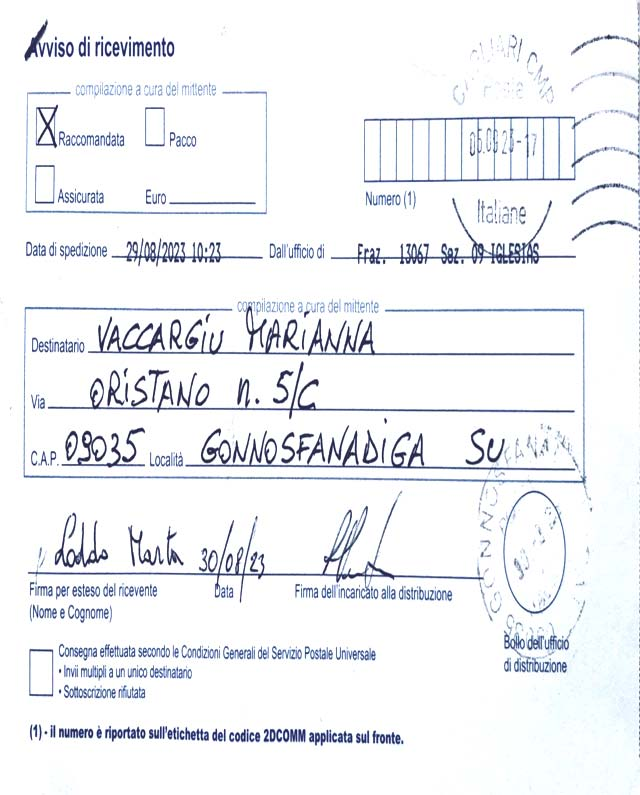 Avviso di ricevimento
compilazione a cura del mittente
Raccomandata Pacco
Assicurata Euro
CAGLIARI CMP
Poste
05.09.23-17
Italiane
Numero (1)
Data di spedizione 29/08/2023 10:23 Dall'ufficio di Fraz. 13067 Sez. 09 IGLESIAS
compilazione a cura del mittente
Destinatario VACCARGIU MARIANNA
Via ORISTANO n. 5/C
C.A.P. 09035 Località GONNOSFANADIGA SU
Loddo Marta 30/08/23
Firma per esteso del ricevente Data Firma dell'incaricato alla distribuzione
(Nome e Cognome)
Bollo dell'ufficio
di distribuzione
Consegna effettuata secondo le Condizioni Generali del Servizio Postale Universale
• Invii multipli a un unico destinatario
• Sottoscrizione rifiutata
(1) - il numero è riportato sull'etichetta del codice 2DCOMM applicata sul fronte.